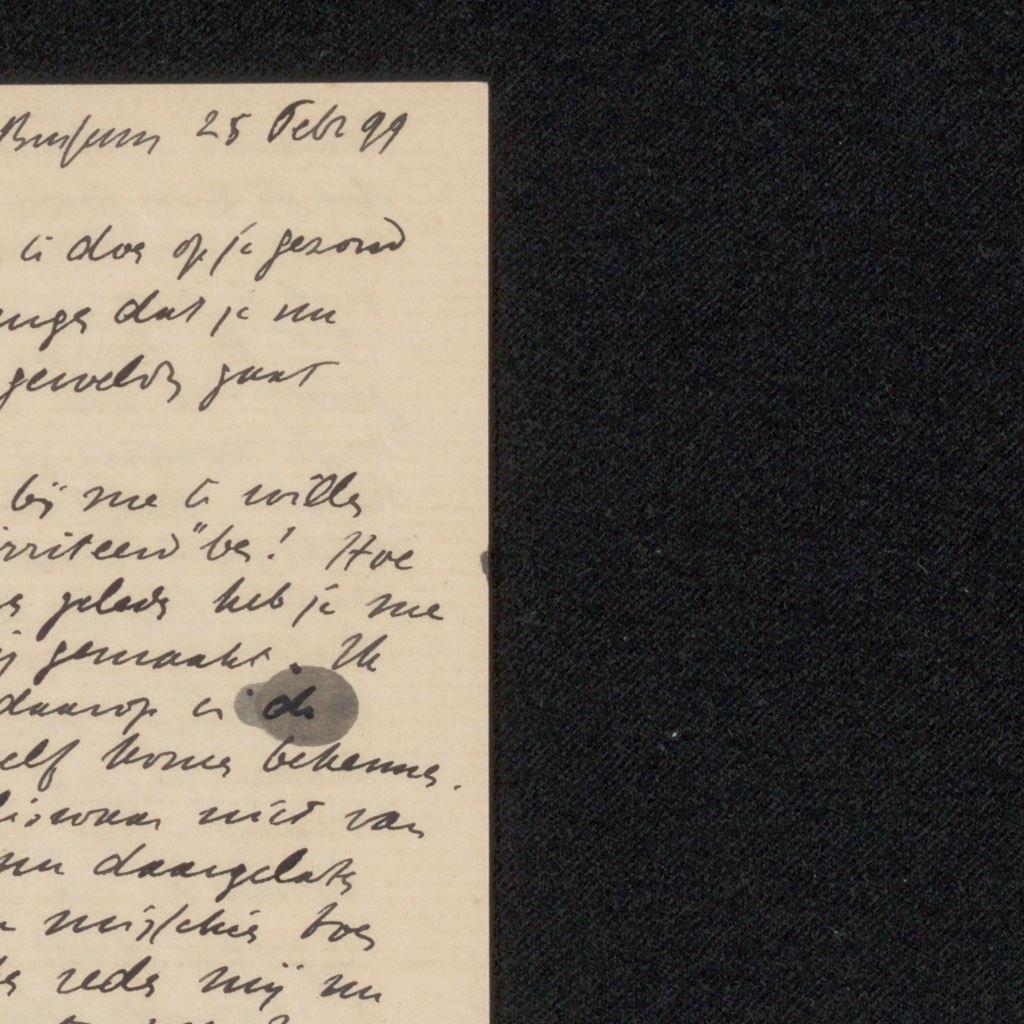 Bussum 25 Febr 99
te doen op je gezond
dat je nu
geweldig gaat
bij me te willen
irriteerd" ben! Hoe
geleden heb je me
gemaakt. Ik
daarop in de
zelf komen bekennen.
niet van
nu daargelaten
misschien toen
reden mij nu